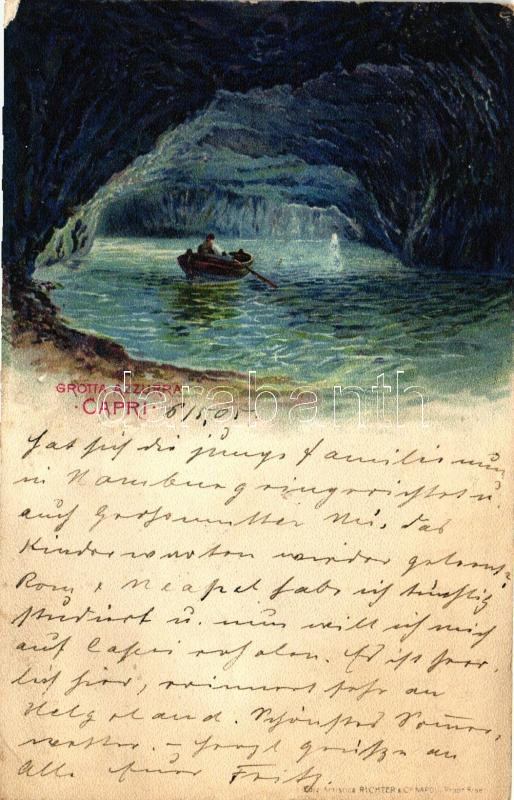 GROTTA AZZURRA
· CAPRI · 6/5.05
darabanth
Hat sich die junge Familie nun
in Hamburg eingerichtet u.
auch Grossmutter das
Kinderwarten wieder gelernt?
Rom & Neapel habe ich tüchtig
studiert u. nun will ich mich
auf Capri erholen. Es ist herr-
lich hier, erinnert sehr an
Helgoland. Schönstes Sommer-
wetter. – Herzl Grüße an
alle Euer Fritz.
Ediz. Artistica RICHTER & Co NAPOLI